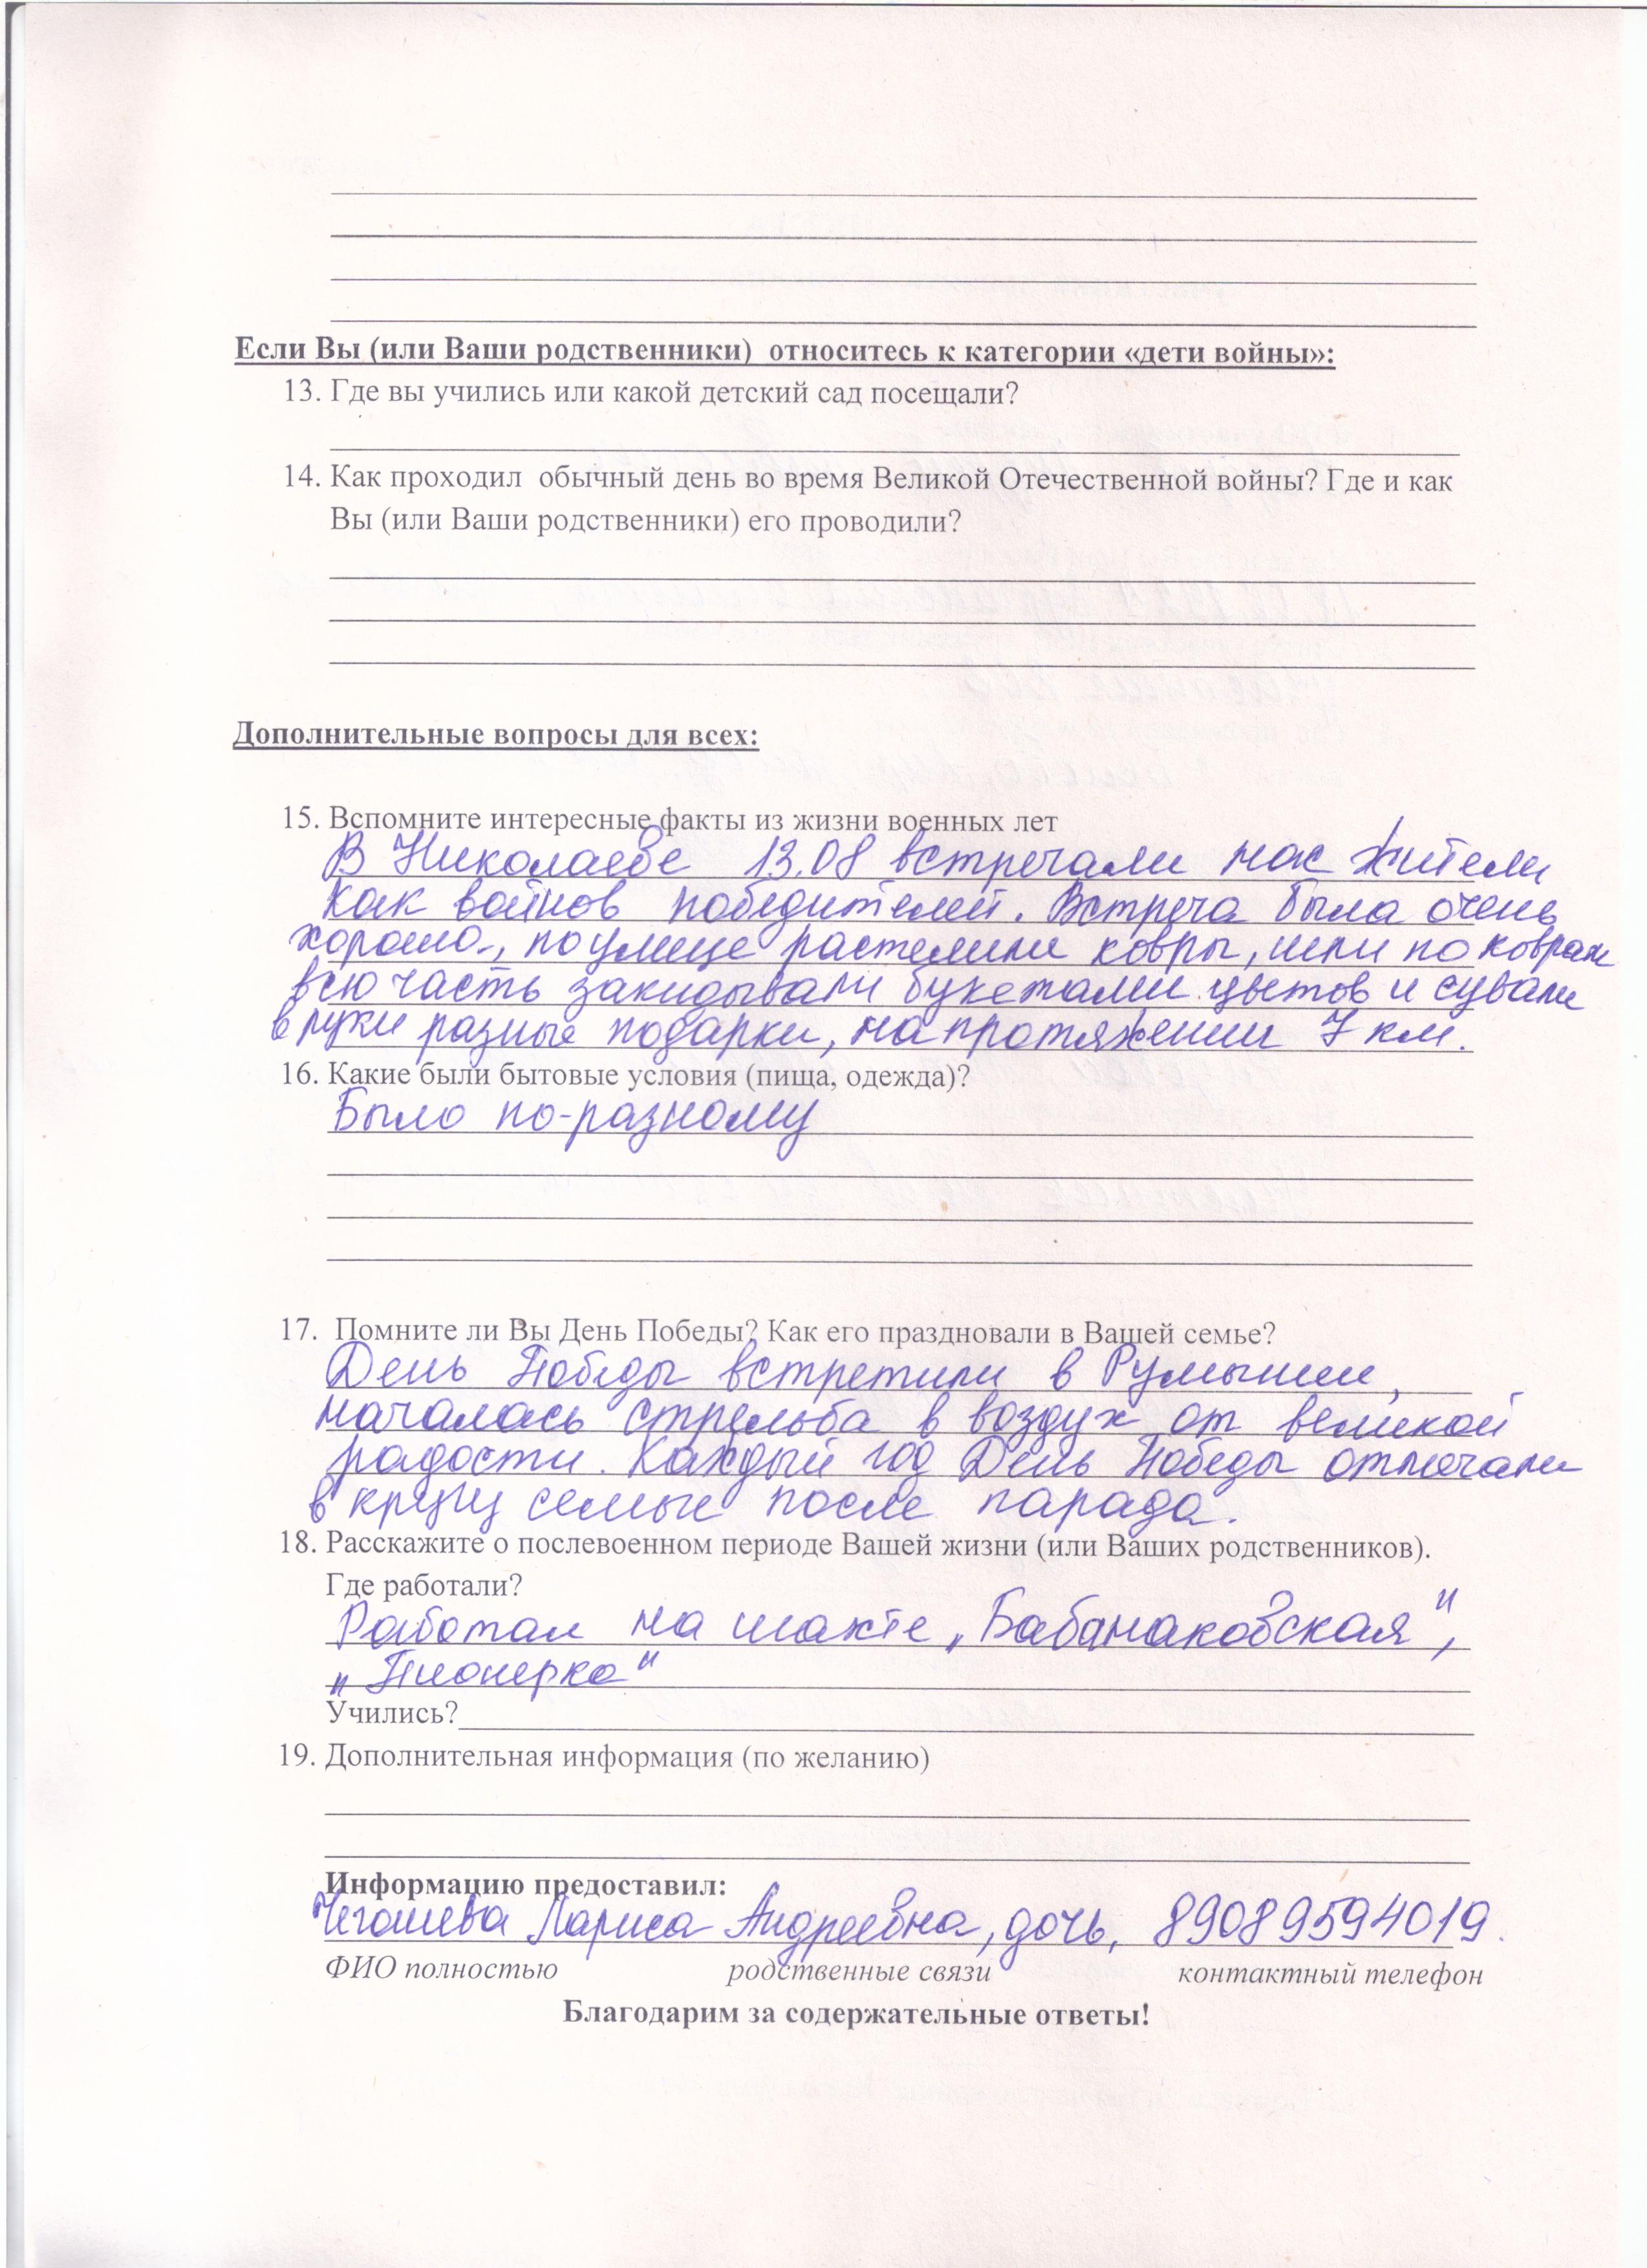 Если Вы (или Ваши родственники) относитесь к категории «дети войны»:
13. Где вы учились или какой детский сад посещали?
14. Как проходил обычный день во время Великой Отечественной войны? Где и как
Вы (или Ваши родственники) его проводили?
Дополнительные вопросы для всех:
15. Вспомните интересные факты из жизни военных лет
В Николаеве 13.08 встречали нас жители
как воинов победителей. Встреча была очень
хорошо, по улице растелили ковры, шли по коврам
всю часть закидывали букетами цветов и сували
в руки разные подарки, на протяжении 7 км.
16. Какие были бытовые условия (пища, одежда)?
Было по-разному
17. Помните ли Вы День Победы? Как его праздновали в Вашей семье?
День Победы встретили в Румынии,
началась стрельба в воздух от великой
радости. Каждый год День Победы отмечали
в кругу семьи после парада.
18. Расскажите о послевоенном периоде Вашей жизни (или Ваших родственников).
Где работали?
Работал на шахте „Бабанаковская",
„Пионерка"
Учились?
19. Дополнительная информация (по желанию)
Информацию предоставил:
Чегошева Лариса Андреевна, дочь, 89089594019.
ФИО полностью родственные связи контактный телефон
Благодарим за содержательные ответы!